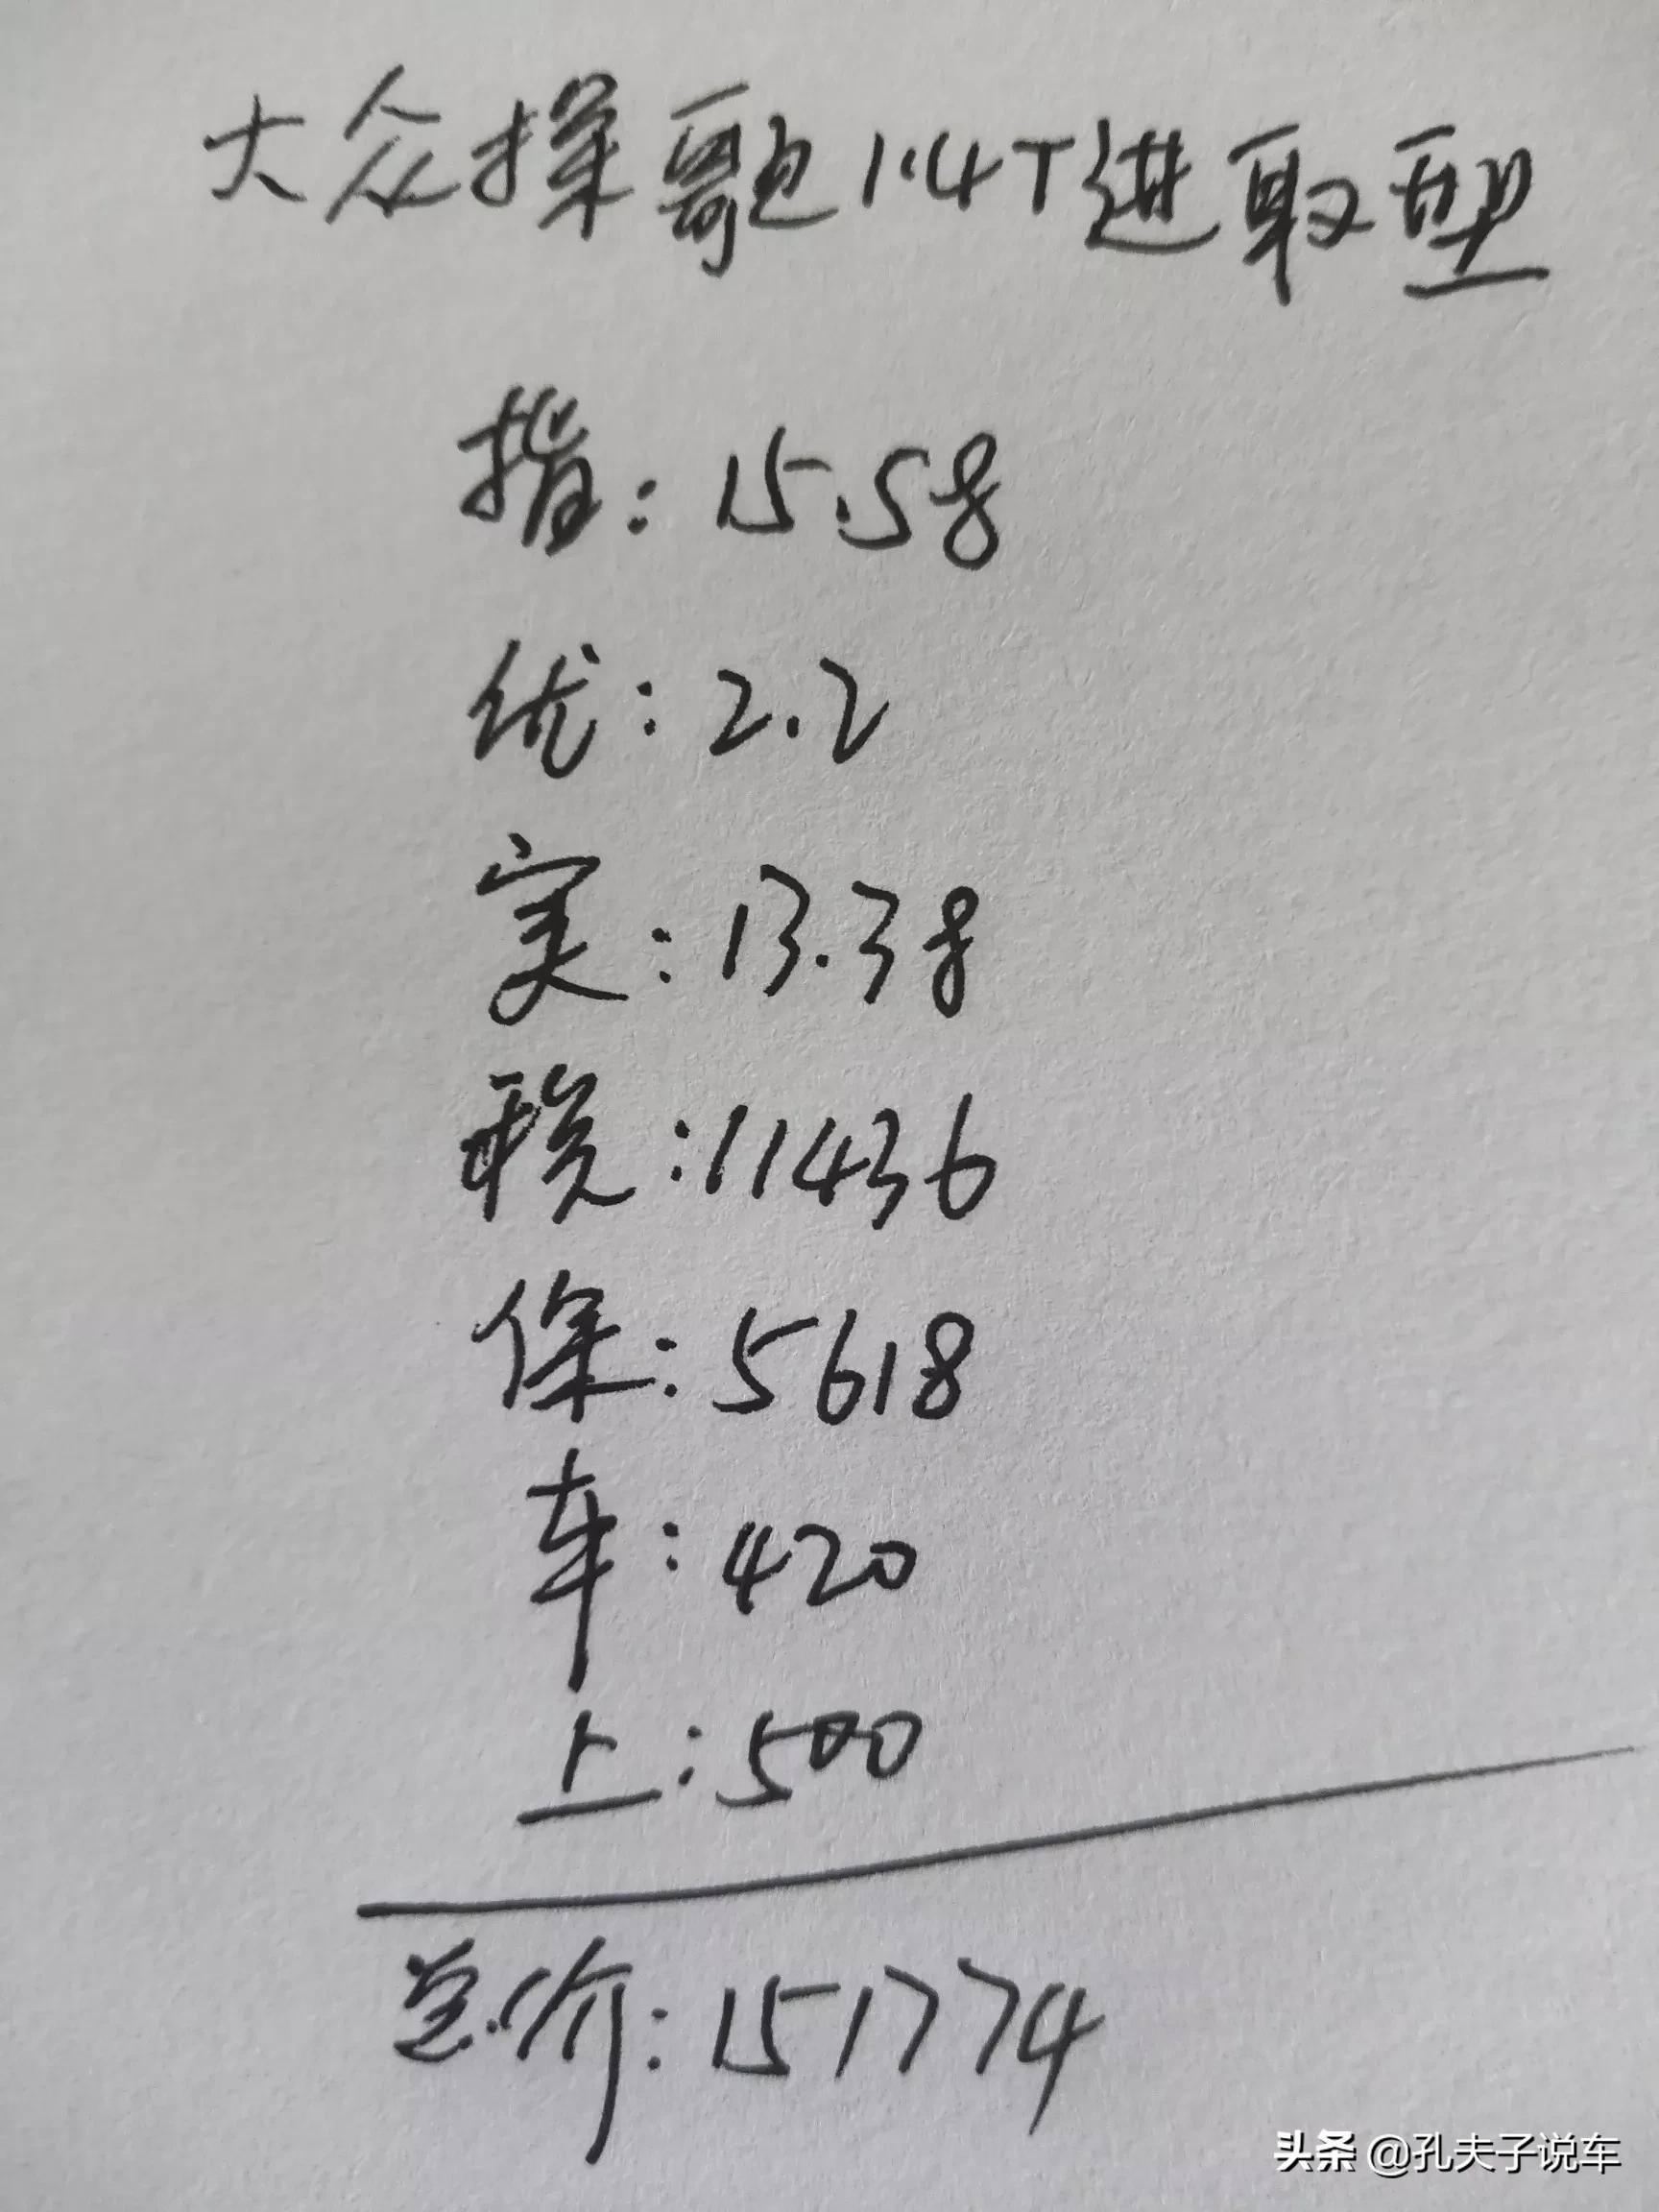 大众探歌1.4T进取型
指:15.58
优:2.2
实:13.38
税:11436
保:5618
车:420
上:500
总价:151774
头条 @孔夫子说车